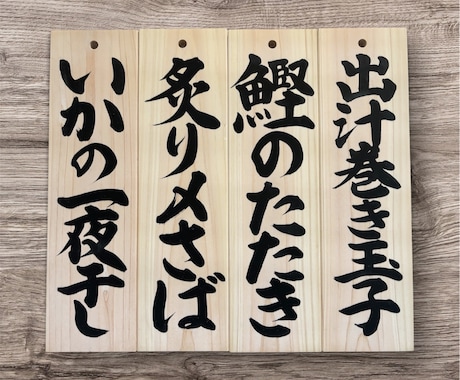 出汁巻き玉子
鰹のたたき
炙り〆さば
いかの一夜干し